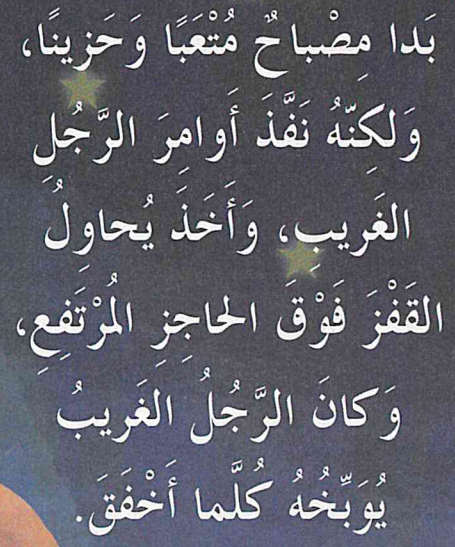 بَدا مِصْباحٌ مُتْعَبًا وَحَزينًا،
وَلكِنّهُ نَفَّذَ أَوامِرَ الرَّجُلِ
الغَريبِ، وَأَخَذَ يُحاوِلُ
القَفْزَ فَوْقَ الحاجِزِ المُرْتَفِعِ،
وَكانَ الرَّجُلُ الغَريبُ
يُوَبِّخُهُ كُلَّما أَخْفَقَ.